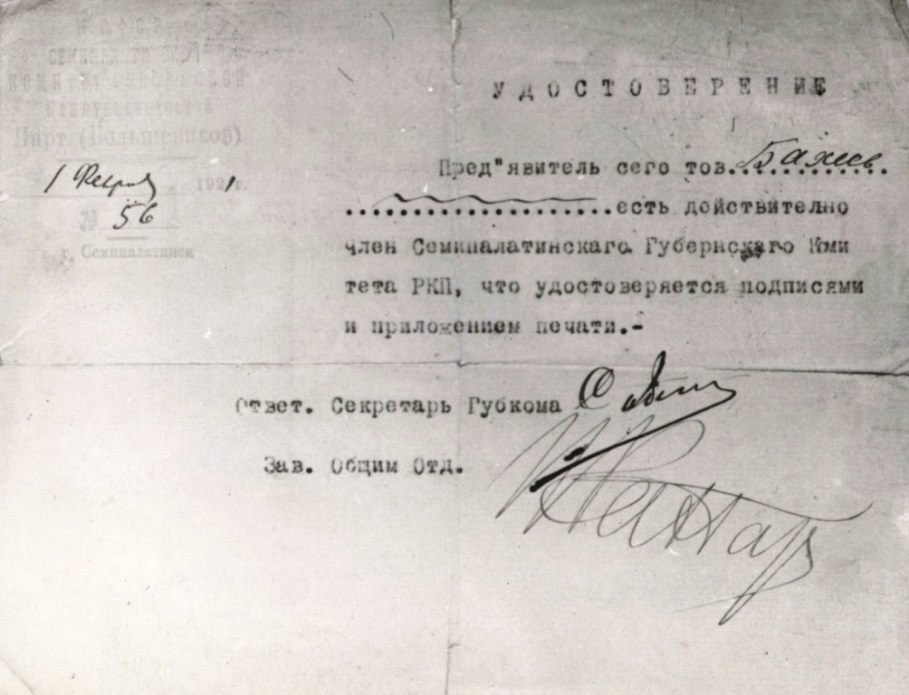 Р.С.Ф.С.Р.
СЕМИПАЛАТИН
КОМИТЕТ
Коммунистической
Парт. (Большевиков)
1 Феврал 1921 г.
№ 56
г. Семипалатинск
УДОСТОВЕРЕНИЕ
Пред"явитель сего тов.
есть действительно
член Семипалатинскаго Губернскаго Кми
тета РКП, что удостоверяется подписями
и приложением печати.-
Ответ. Секретарь Губкома
Зав. Общим Отд.